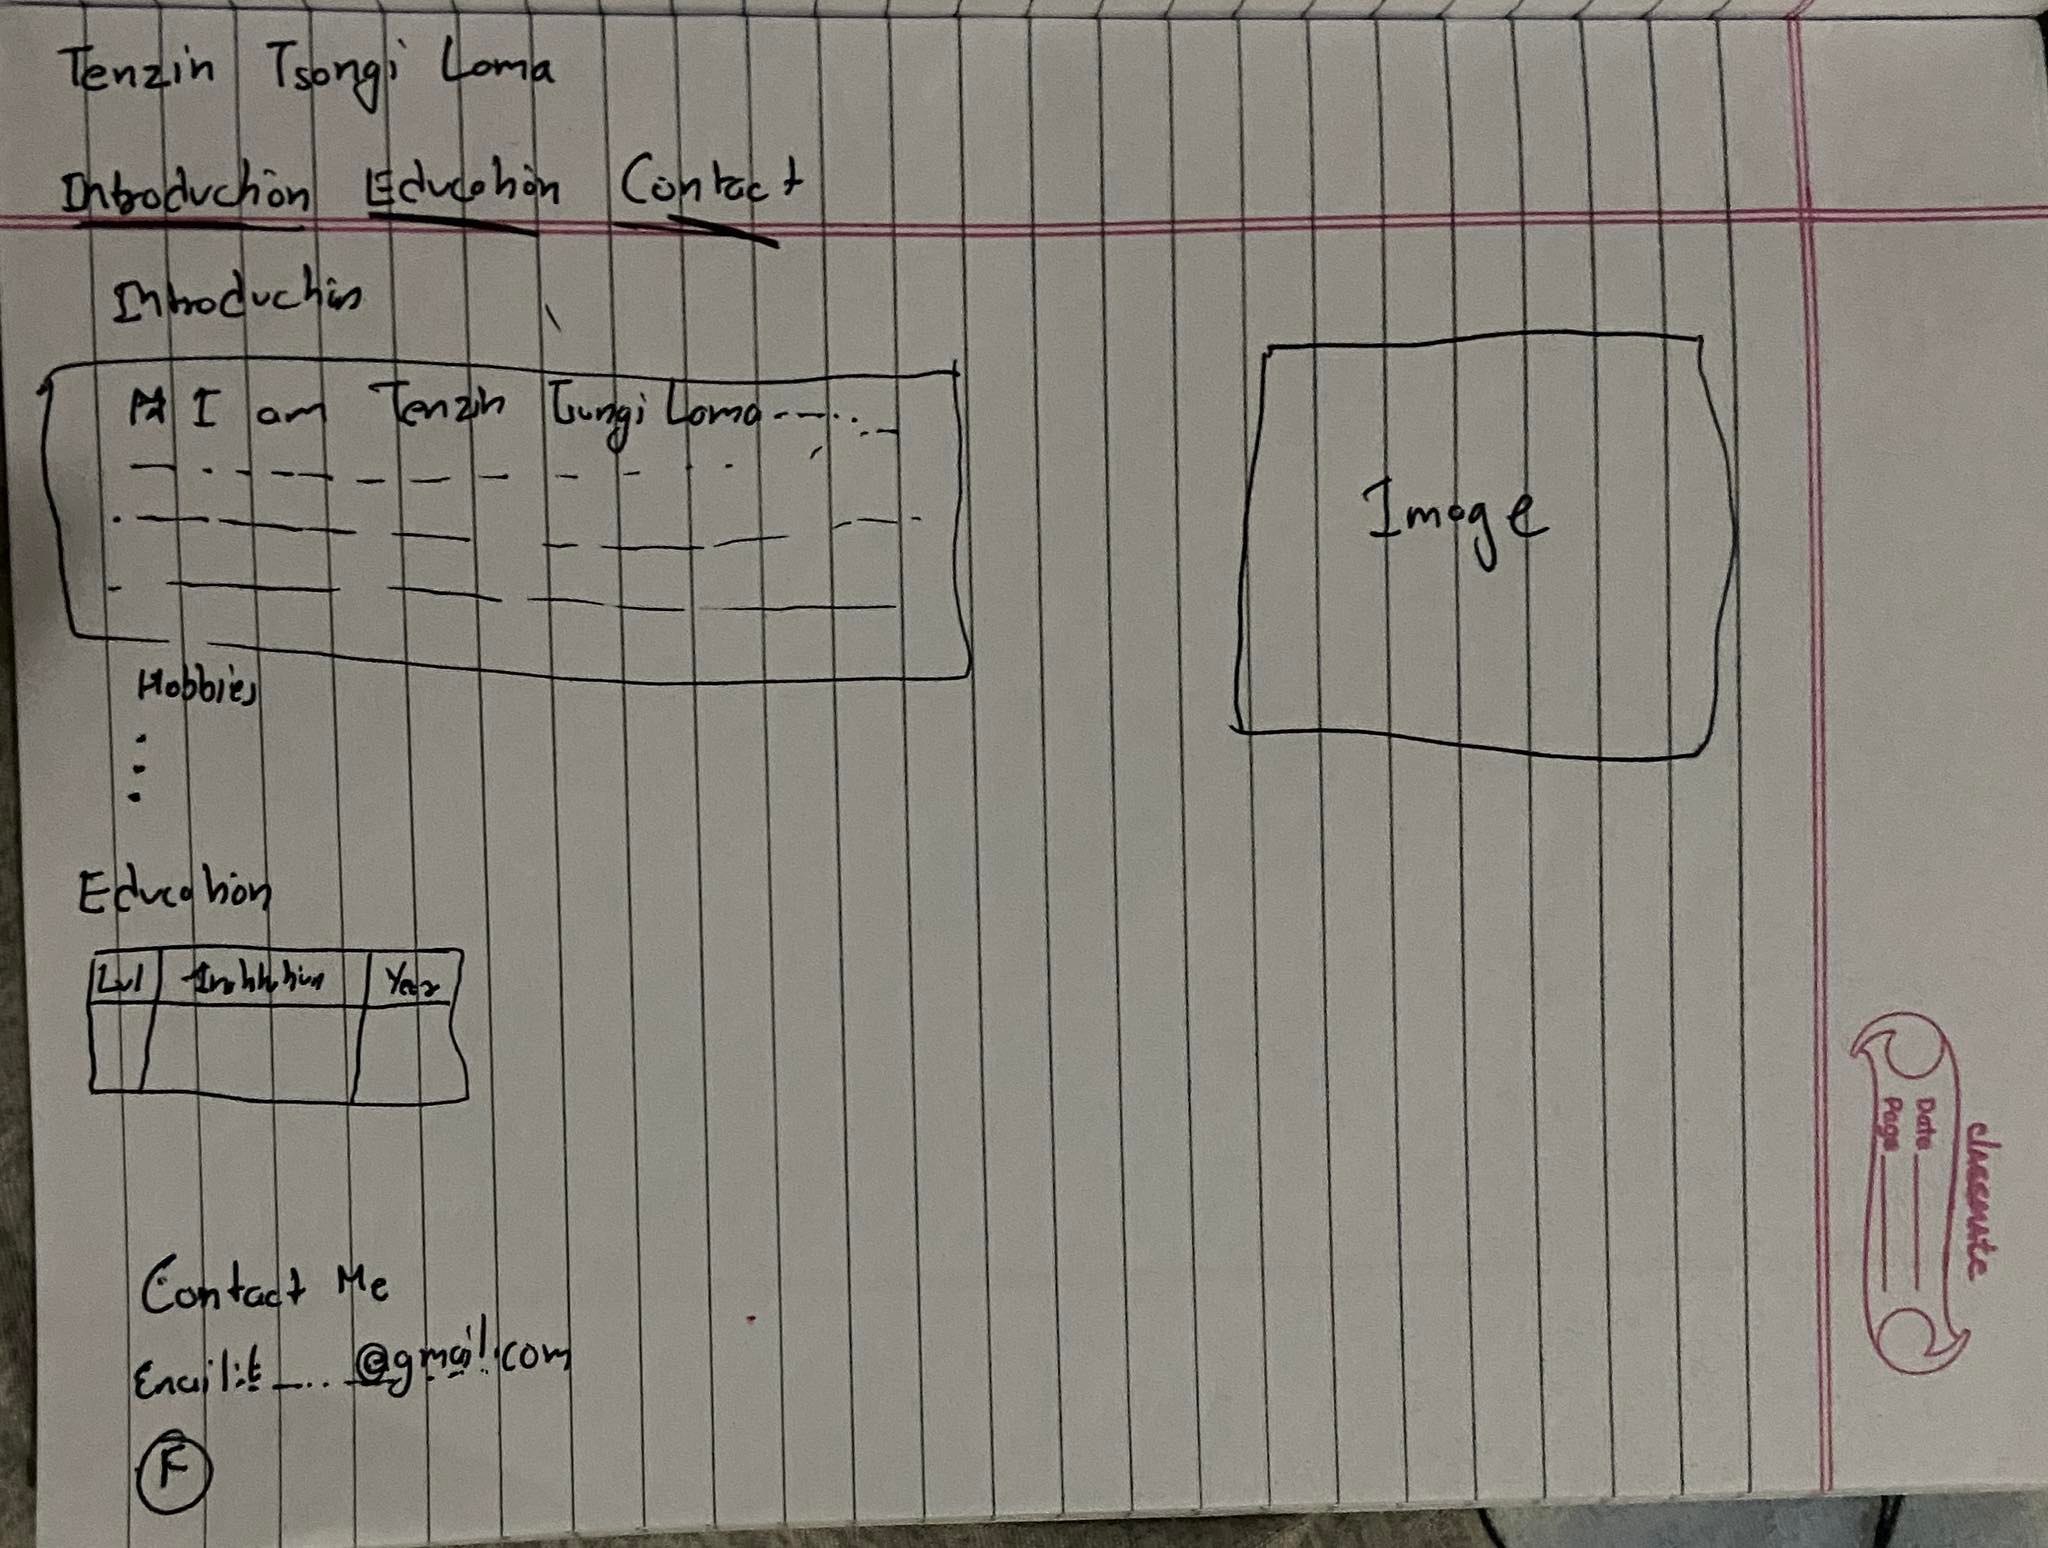 Tenzin Tsongi Loma
Introduction Education Contact
Introduction
I am Tenzin Tsungi Loma
Image
Hobbies
Education
Lvl Institution Year
Contact Me
Email: t @gmail.com
F
classmate
Date
Page